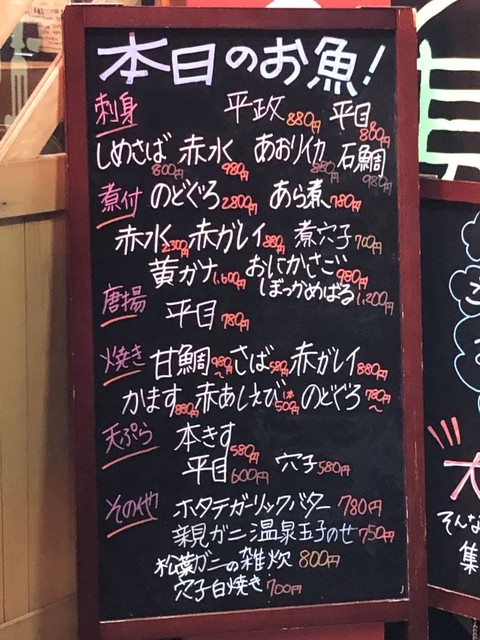 本日のお魚!
刺身 平政 880円 平目 880円
しめさば 800円 赤水 980円 あおりイカ 980円 石鯛 980円
煮付 のどぐろ 2800円 あら煮 780円
赤水 2300円 赤ガレイ 880円 煮穴子 700円
黄ガナ 1,600円 おにかさご 980円
ぼっかめばる 1,200円
唐揚 平目 780円
焼き 甘鯛 980円〜 さば 580円 赤ガレイ 880円
かます 880円 赤あしえび 1本 500円 のどぐろ 780円〜
天ぷら 本きす 580円
平目 600円 穴子 580円
その他 ホタテガーリックバター 780円
親見ガニ温泉玉子のせ 750円
松葉ガニの雑炊 800円
穴子白焼き 700円
大
そんな
集